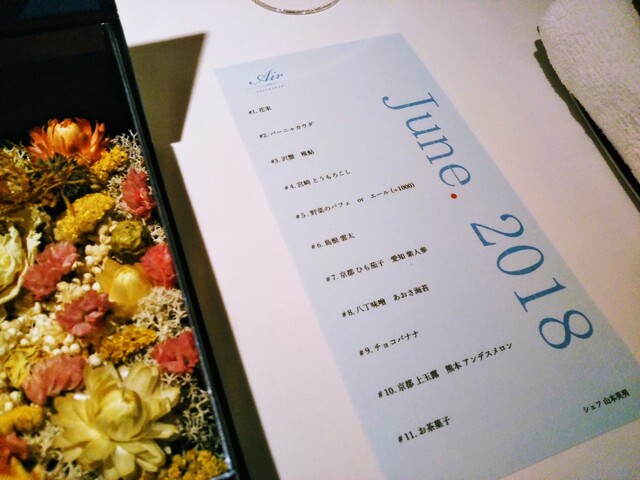 Air
#1. 花束
#2. バーニャカウダ
#3. 沢蟹 稚鮎
#4. 宮崎 とうもろこし
#5. 野菜のパフェ or エール (+1000)
#6. 島根 雲太
#7. 京都 ひも茄子 愛知 紫人参
#8. 八丁味噌 あおさ海苔
#9. チョコバナナ
#10. 京都 上玉露 熊本 アンデスメロン
#11. お茶菓子
シェフ 山本英男
June. 2018